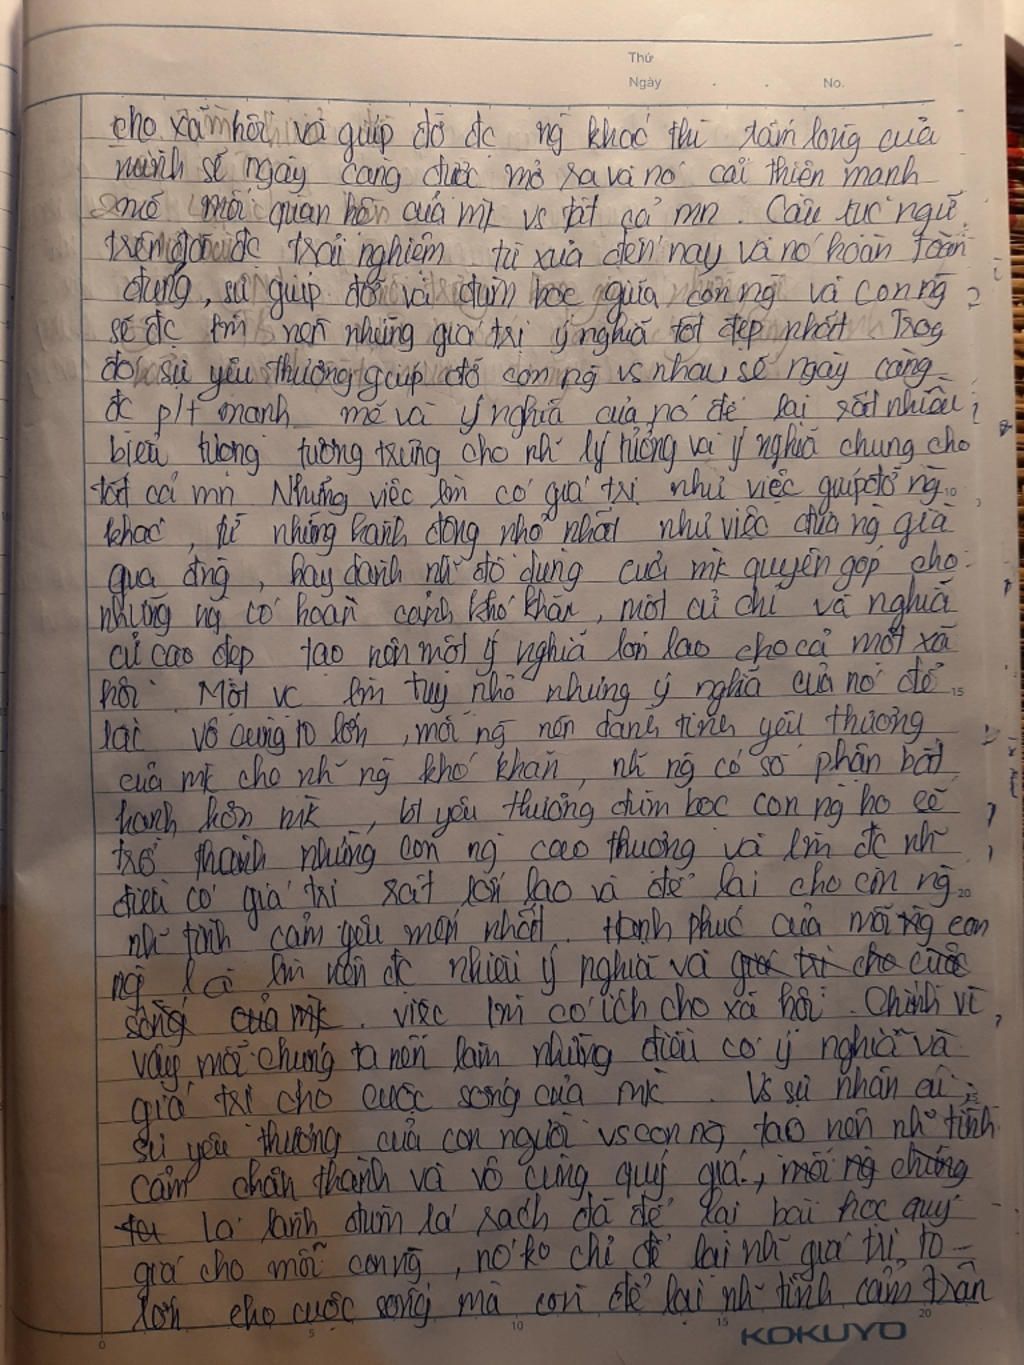 Thứ
Ngày . . No.
cho xã hội và giúp đỡ đc ng khác thì tấm lòng của
mình sẽ ngày càng được mở ra và nó cải thiện mạnh
mẽ mối quan hệ của mk vs tất cả mn. Câu tục ngữ
trên đã đc trải nghiệm từ xưa đến nay và nó hoàn toàn
đúng, sự giúp đỡ và đùm bọc giữa con ng và con ng
sẽ đc lm nên những giá trị ý nghĩa tốt đẹp nhất. Trog
đó sự yêu thương giúp đỡ con ng vs nhau sẽ ngày càng
đc p/t mạnh mẽ và ý nghĩa của nó để lại rất nhiều
biểu tượng tượng trưng cho nh~ lý tưởng và ý nghĩa chung cho
tất cả mn. Những việc lm có giá trị như việc giúp đỡ ng
khác, từ những hành động nhỏ nhất như việc đưa ng già
qua đng, hay dành nh~ đồ dùng của mk quyên góp cho
những ng có hoàn cảnh khó khăn, một cử chỉ và nghĩa
cử cao đẹp tạo nên một ý nghĩa lớn lao cho cả một xã
hội. Một vc lm tuy nhỏ nhưng ý nghĩa của nó để
lại vô cùng to lớn, mỗi ng nên dành tình yêu thương
của mk cho nh~ ng khó khăn, nh~ ng có số phận bất
hạnh hơn mk, bt yêu thương đùm bọc con ng họ sẽ
trở thành những con ng cao thượng và lm đc nh~
điều có giá trị rất lớn lao và để lại cho con ng
nh~ tình cảm yêu mến nhất. Hạnh phúc của mỗi ng con
ng là lm nên đc nhiều ý nghĩa và giá trị cho cuộc
sống của mk. việc lm có ích cho xã hội. Chính vì
vậy mỗi chúng ta nên làm những điều có ý nghĩa và
giá trị cho cuộc sống của mk. Vs sự nhân ái,
sự yêu thương của con người vs con ng tạo nên nh~ tình
cảm chân thành và vô cùng quý giá, mỗi ng chúng
ta lá lành đùm lá rách đã để lại bài học quý
giá cho mỗi con ng, nó ko chỉ để lại nh~ giá trị to
lớn cho cuộc sống mà còn để lại nh~ tình cảm trân
KOKUYO